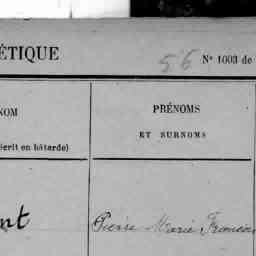 ÉTIQUE
56 N° 1003 de
NOM
PRÉNOMS
ET SURNOMS
écrit en bâtarde)
nt
Pierre Marie Francois